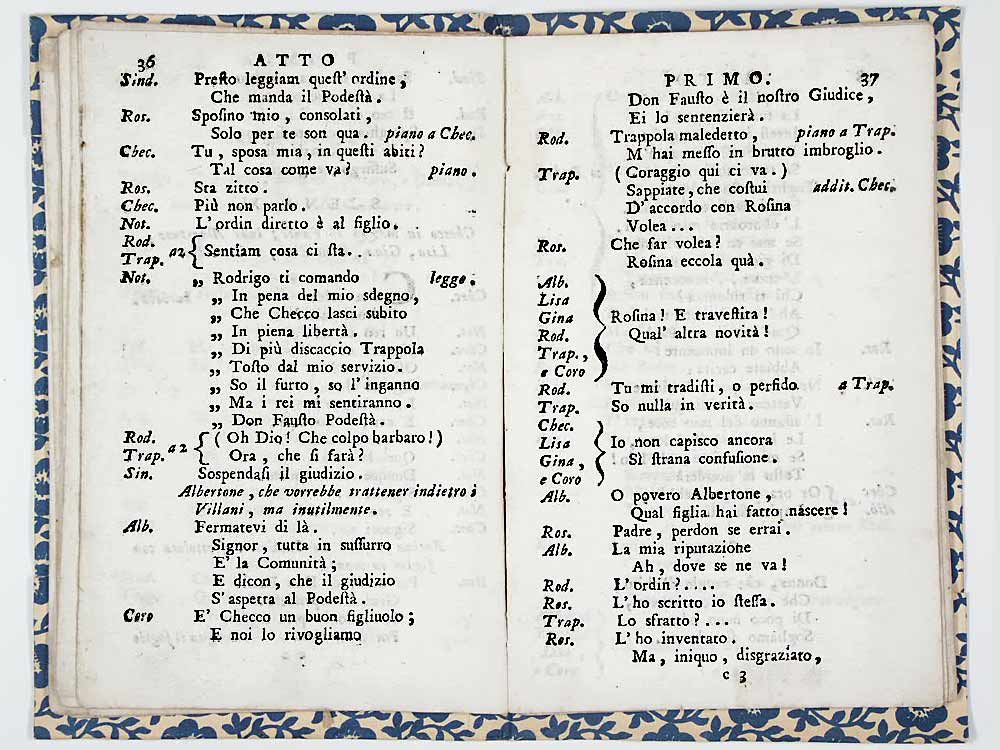 36 ATTO
Sind. Preſto leggiam queſt' ordine,
Che manda il Podeſtà.
Ros. Spoſino mio, conſolati,
Solo per te son qua. piano a Chec.
Chec. Tu, sposa mia, in queſti abiti?
Tal cosa come va? piano.
Ros. Sta zitto.
Chec. Più non parlo.
Not. L'ordin diretto è al figlio.
Rod.
Trap. a2 { Sentiam cosa ci ſta.
Not. „ Rodrigo ti comando legge.
„ In pena del mio sdegno,
„ Che Checco laſci subito
„ In piena libertà.
„ Di più discaccio Trappola
„ Toſto dal mio servizio.
„ So il furto, so l'inganno
„ Ma i rei mi sentiranno.
„ Don Fauſto Podeſtà.
Rod. { (Oh Dio! Che colpo barbaro!)
Trap. a2 Ora, che ſi farà?
Sin. Sospendaſi il giudizio.
Albertone, che vorrebbe trattener indietro i
Villani, ma inutilmente.
Alb. Fermatevi di là.
Signor, tutta in suſſurro
E' la Comunità;
E dicon, che il giudizio
S'aspetta al Podeſtà.
Coro E' Checco un buon figliuolo;
E noi lo rivogliamo
PRIMO. 37
Don Fauſto è il noſtro Giudice,
Ei lo sentenzierà.
Rod. Trappola maledetto, piano a Trap.
M'hai meſſo in brutto imbroglio.
Trap. (Coraggio qui ci va.)
Sappiate, che coſtui addit. Chec.
D'accordo con Roſina
Volea...
Ros. Che far volea?
Roſina eccola quà.
Alb.
Lisa
Gina Roſina! E traveſtita!
Rod. Qual' altra novità!
Trap.,
e Coro
Rod. Tu mi tradiſti, o perfido. a Trap.
Trap. So nulla in verità.
Chec.
Lisa Io non capisco ancora
Gina, Sì ſtrana confuſione.
e Coro
Alb. O povero Albertone,
Qual figlia hai fatto nascere!
Ros. Padre, perdon se errai.
Alb. La mia riputazione
Ah, dove se ne va!
Rod. L'ordin?....
Ros. L'ho scritto io ſteſſa.
Trap. Lo sfratto?...
Ros. L'ho inventato.
Ma, iniquo, disgraziato,
C 3